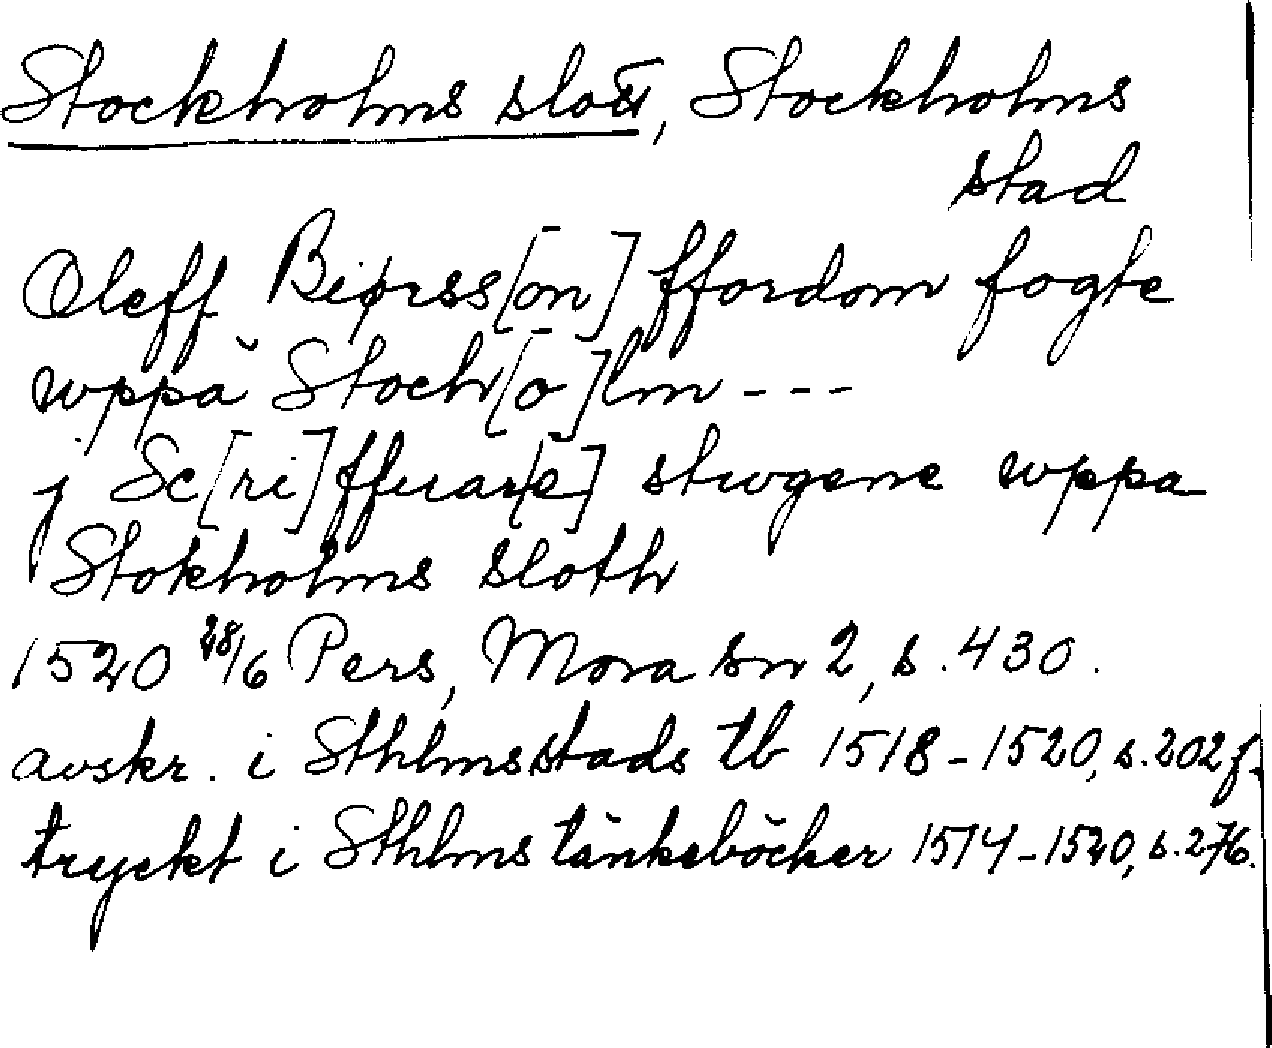 Stockholms slott, Stockholms
stad
Oleff Biørss[on] ffordom fogte
wppå Stoch[o]lm - - -
j Sc[ri]ffuar[e] stwgene wppa
Stokholms sloth
1520 28/6 Pers, Mora sn 2, s. 430.
avskr. i Sthlms stads tb 1518-1520, s. 202 f.
tryckt i Sthlms tänkeböcker 1514-1520, s. 276.